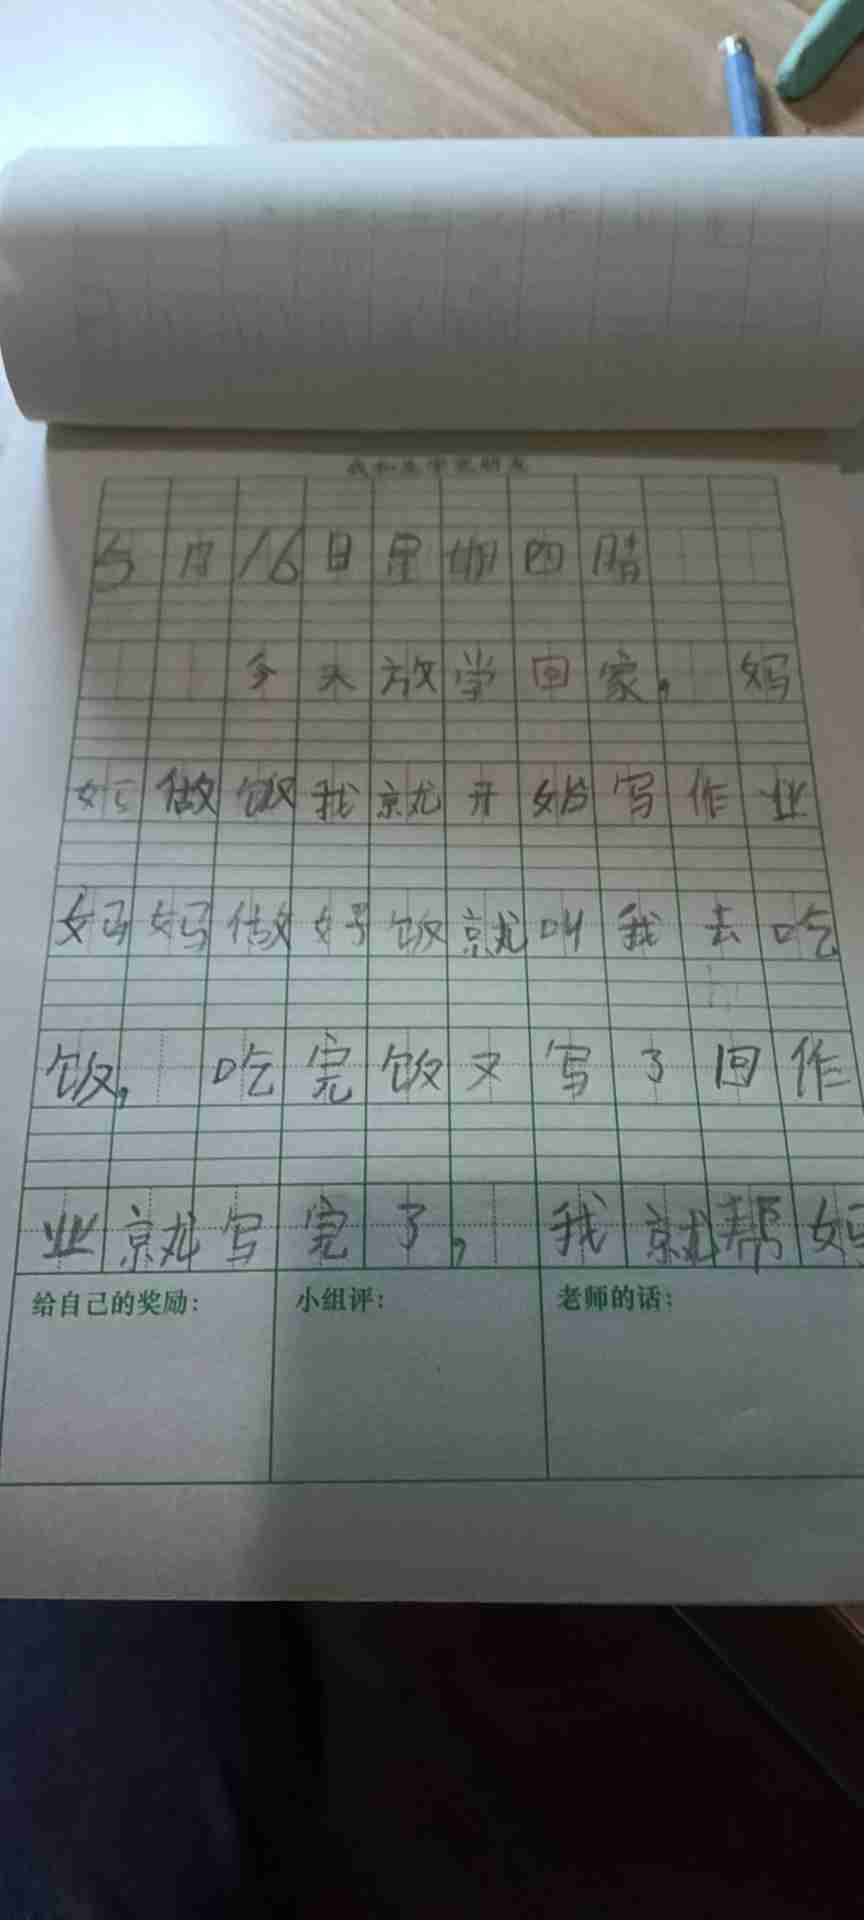 我和生字交朋友
5月16日星期四腊
今天放学回家，妈
妈做饭我就开始写作业
妈妈做好饭就叫我去吃
饭，吃完饭又写了回作
业就写完了，我就帮妈
给自己的奖励： 小组评： 老师的话：